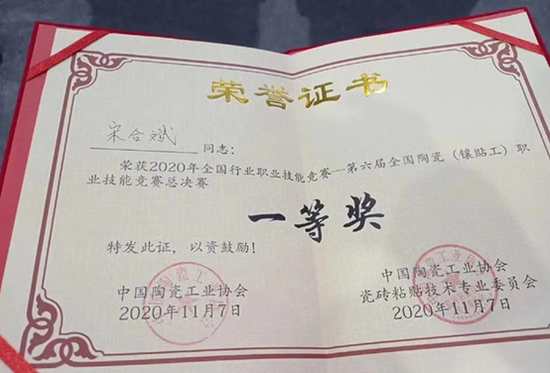 荣誉证书
宋合斌 同志:
荣获2020年全国行业职业技能竞赛—第六届全国陶瓷（镶贴工）职
业技能竞赛总决赛
一等奖
特发此证，以资鼓励!
中国陶瓷工业协会
2020年11月7日
中国陶瓷工业协会
瓷砖粘贴技术专业委员会
2020年11月7日